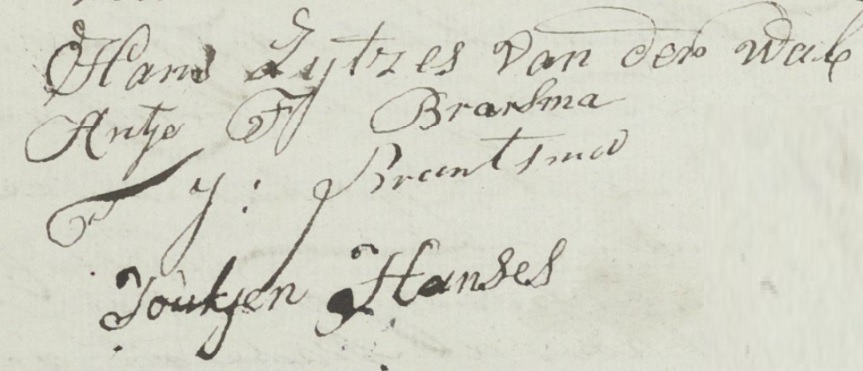 Hans Zytzes van der Wal
Antje F Braksma
F Y: Brantsma
Joukjen Hanses